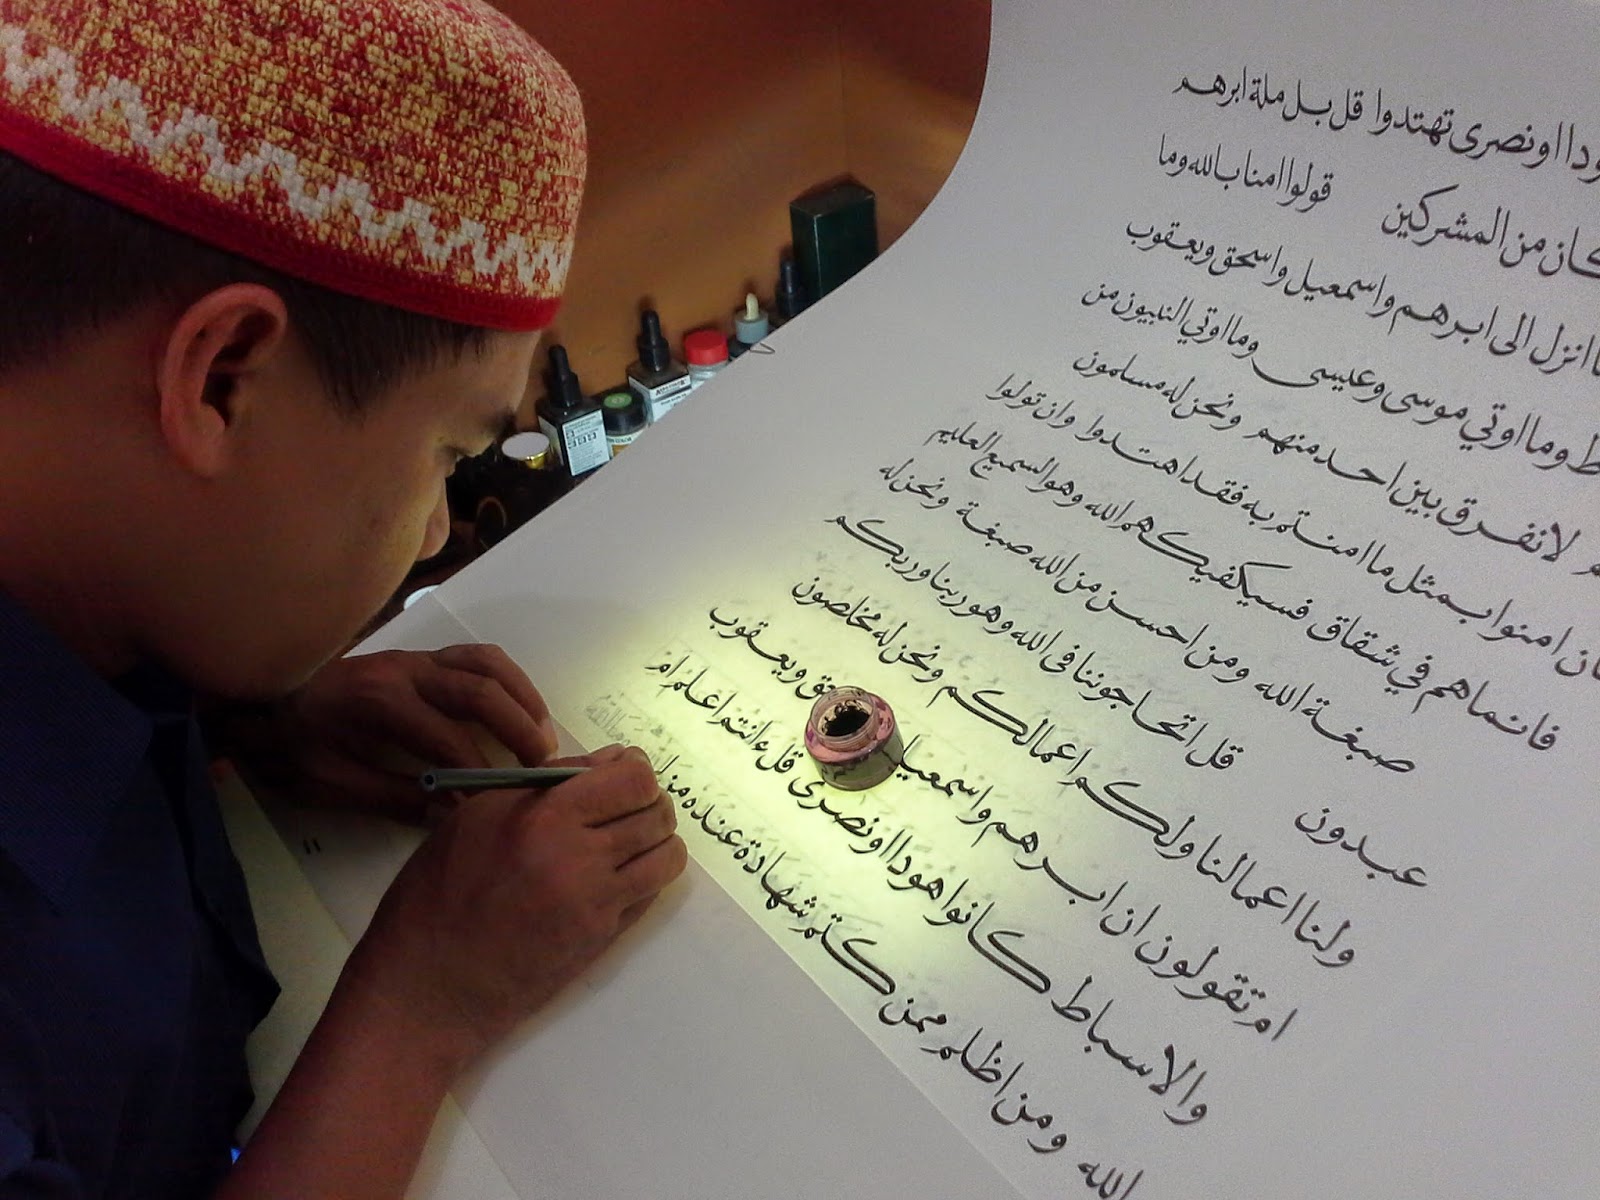 ودا او نصرى تهتدوا قل بل ملة ابرهم
كان من المشركين قولوا امنا بالله وما
ا انزل الى ابرهم واسمعيل واسحق ويعقوب
ط وما اوتي موسى وعيسى وما اوتي النبيون من
م لا نفرق بين احد منهم ونحن له مسلمون
ان امنوا بمثل ما امنتم به فقد اهتدوا وان تولوا
فانما هم في شقاق فسيكفيكهم الله وهو السميع العليم
صبغة الله ومن احسن من الله صبغة ونحن له
عبدون قل اتحاجوننا فى الله وهو ربنا وربكم
ولنا اعمالنا ولكم اعمالكم ونحن له مخلصون
ام تقولون ان ابرهم واسمعيل ويعقوب
والاسباط كانوا هودا او نصرى قل ءانتم اعلم ام
الله ومن اظلم ممن كتم شهادة عنده من